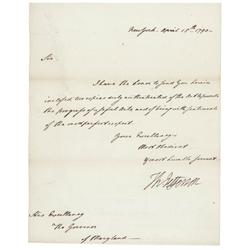 New York April 15th 1790
Sir
I have the honor to send you herein
inclosed, two copies duly authenticated of the Act to promote
the progress of useful Arts and of being with sentiments
of the most perfect respect.
Your Excellency's
Most Obedient
& most humble Servant
Th: Jefferson
His Excellency
The Governor
of Maryland